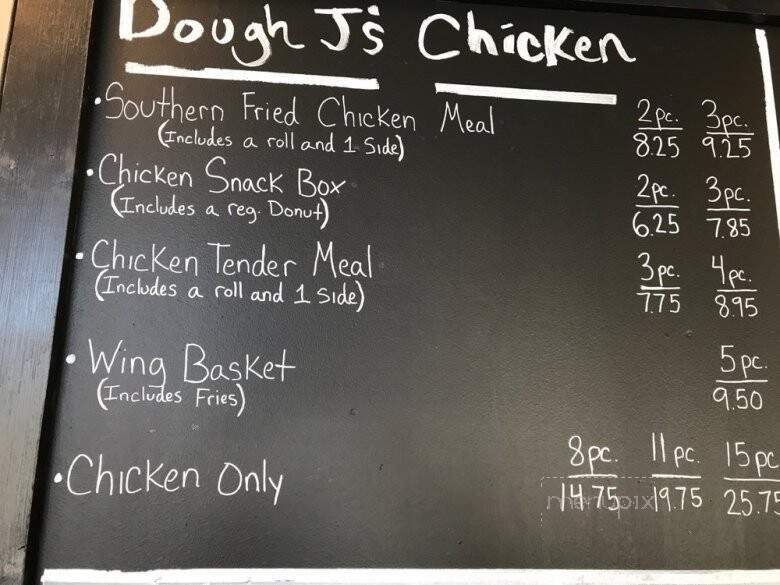 Dough J's Chicken
•Southern Fried Chicken Meal 2pc. 3pc.
(Includes a roll and 1 Side) 8.25 9.25
•Chicken Snack Box 2pc. 3pc.
(Includes a reg. Donut) 6.25 7.85
•Chicken Tender Meal 3pc. 4pc.
(Includes a roll and 1 Side) 7.75 8.95
•Wing Basket 5pc.
(Includes Fries) 9.50
•Chicken Only 8pc. 11pc. 15pc
14.75 19.75 25.75
menupix